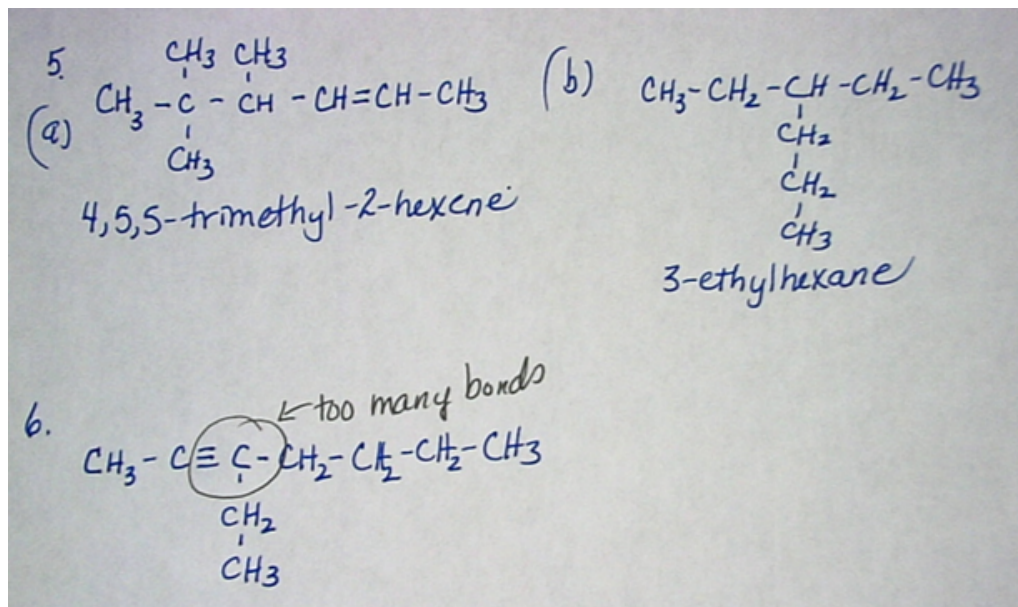 5.
CH3 CH3
(a) CH3 - C - CH - CH=CH-CH3
CH3
4,5,5-trimethyl-2-hexene
(b) CH3-CH2-CH-CH2-CH3
CH2
CH2
CH3
3-ethylhexane
6.
←too many bonds
CH3-C≡C-CH2-CH2-CH2-CH3
CH2
CH3